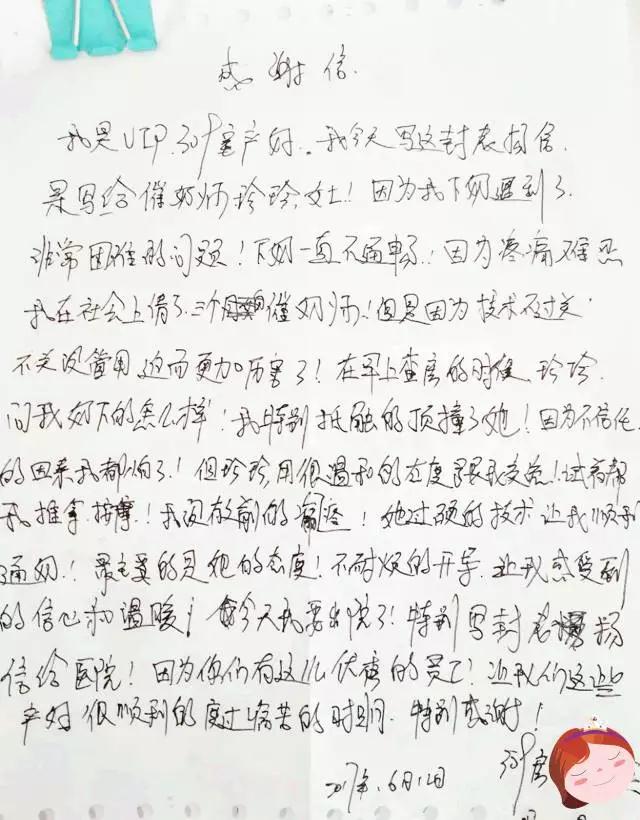 感谢信
我是VIP 产妇。我今天写这封表扬信.
是写给催奶师玲玲女士！因为我下奶遇到了
非常困难的问题！下奶一直不通畅！因为疼痛难忍
我在社会上请了三个催奶师！但是因为技术不过关
不关没管用 迫而更加厉害了！在早上查房的时候 玲玲
问我奶下的怎么样！我特别抵触的顶撞了她！因为不信任
的因素我都怕了！但玲玲用很温和的态度跟我交流！试着帮
我推拿按摩！我没有以前的疼！她过硬的技术让我顺利
通奶！最主要的是她的态度！不耐烦的开导 让我感受到
的信心和温暖！今天我要出院了！特别写封表扬
信给医院！因为你们有这么优秀的员工！让我们这些
产妇很顺利的度过痛苦的时期. 特别感谢！
2017年.6月12日